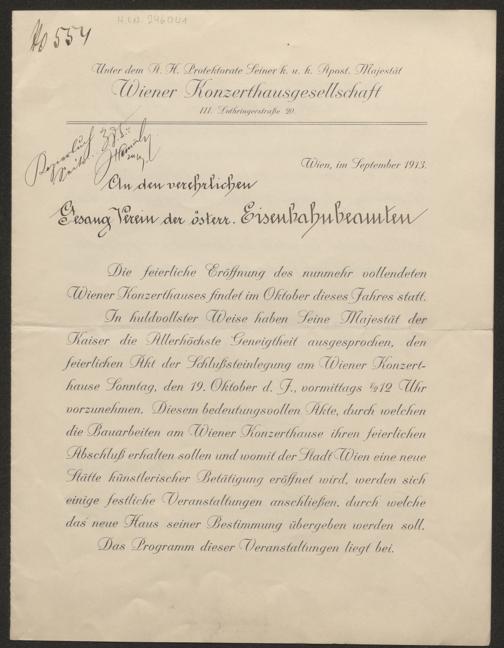 H.I.N. 246041
No 554
Unter dem A. H. Protektorate Seiner k. u. k. Apost. Majestät
Wiener Konzerthausgesellschaft
III. Lothringerstraße 20.
Wien, im September 1913.
An den verehrlichen
Gesang Verein der österr. Eisenbahnbeamten
Die feierliche Eröffnung des nunmehr vollendeten
Wiener Konzerthauses findet im Oktober dieses Jahres statt.
In huldvollster Weise haben Seine Majestät der
Kaiser die Allerhöchste Geneigtheit ausgesprochen, den
feierlichen Akt der Schlußsteinlegung am Wiener Konzert-
hause Sonntag, den 19. Oktober d. J., vormittags ½12 Uhr
vorzunehmen. Diesem bedeutungsvollen Akte, durch welchen
die Bauarbeiten am Wiener Konzerthause ihren feierlichen
Abschluß erhalten sollen und womit der Stadt Wien eine neue
Stätte künstlerischer Betätigung eröffnet wird, werden sich
einige festliche Veranstaltungen anschließen, durch welche
das neue Haus seiner Bestimmung übergeben werden soll.
Das Programm dieser Veranstaltungen liegt bei.